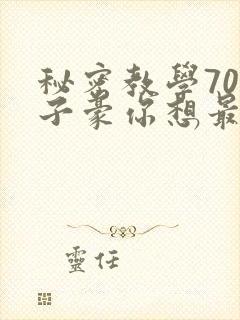 秘密教學70
子豪你想最
靈任